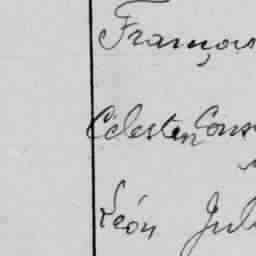 François
Célestin Cons
Léon Jul